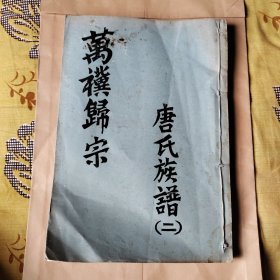 萬襆歸宗
唐氏族譜(二)